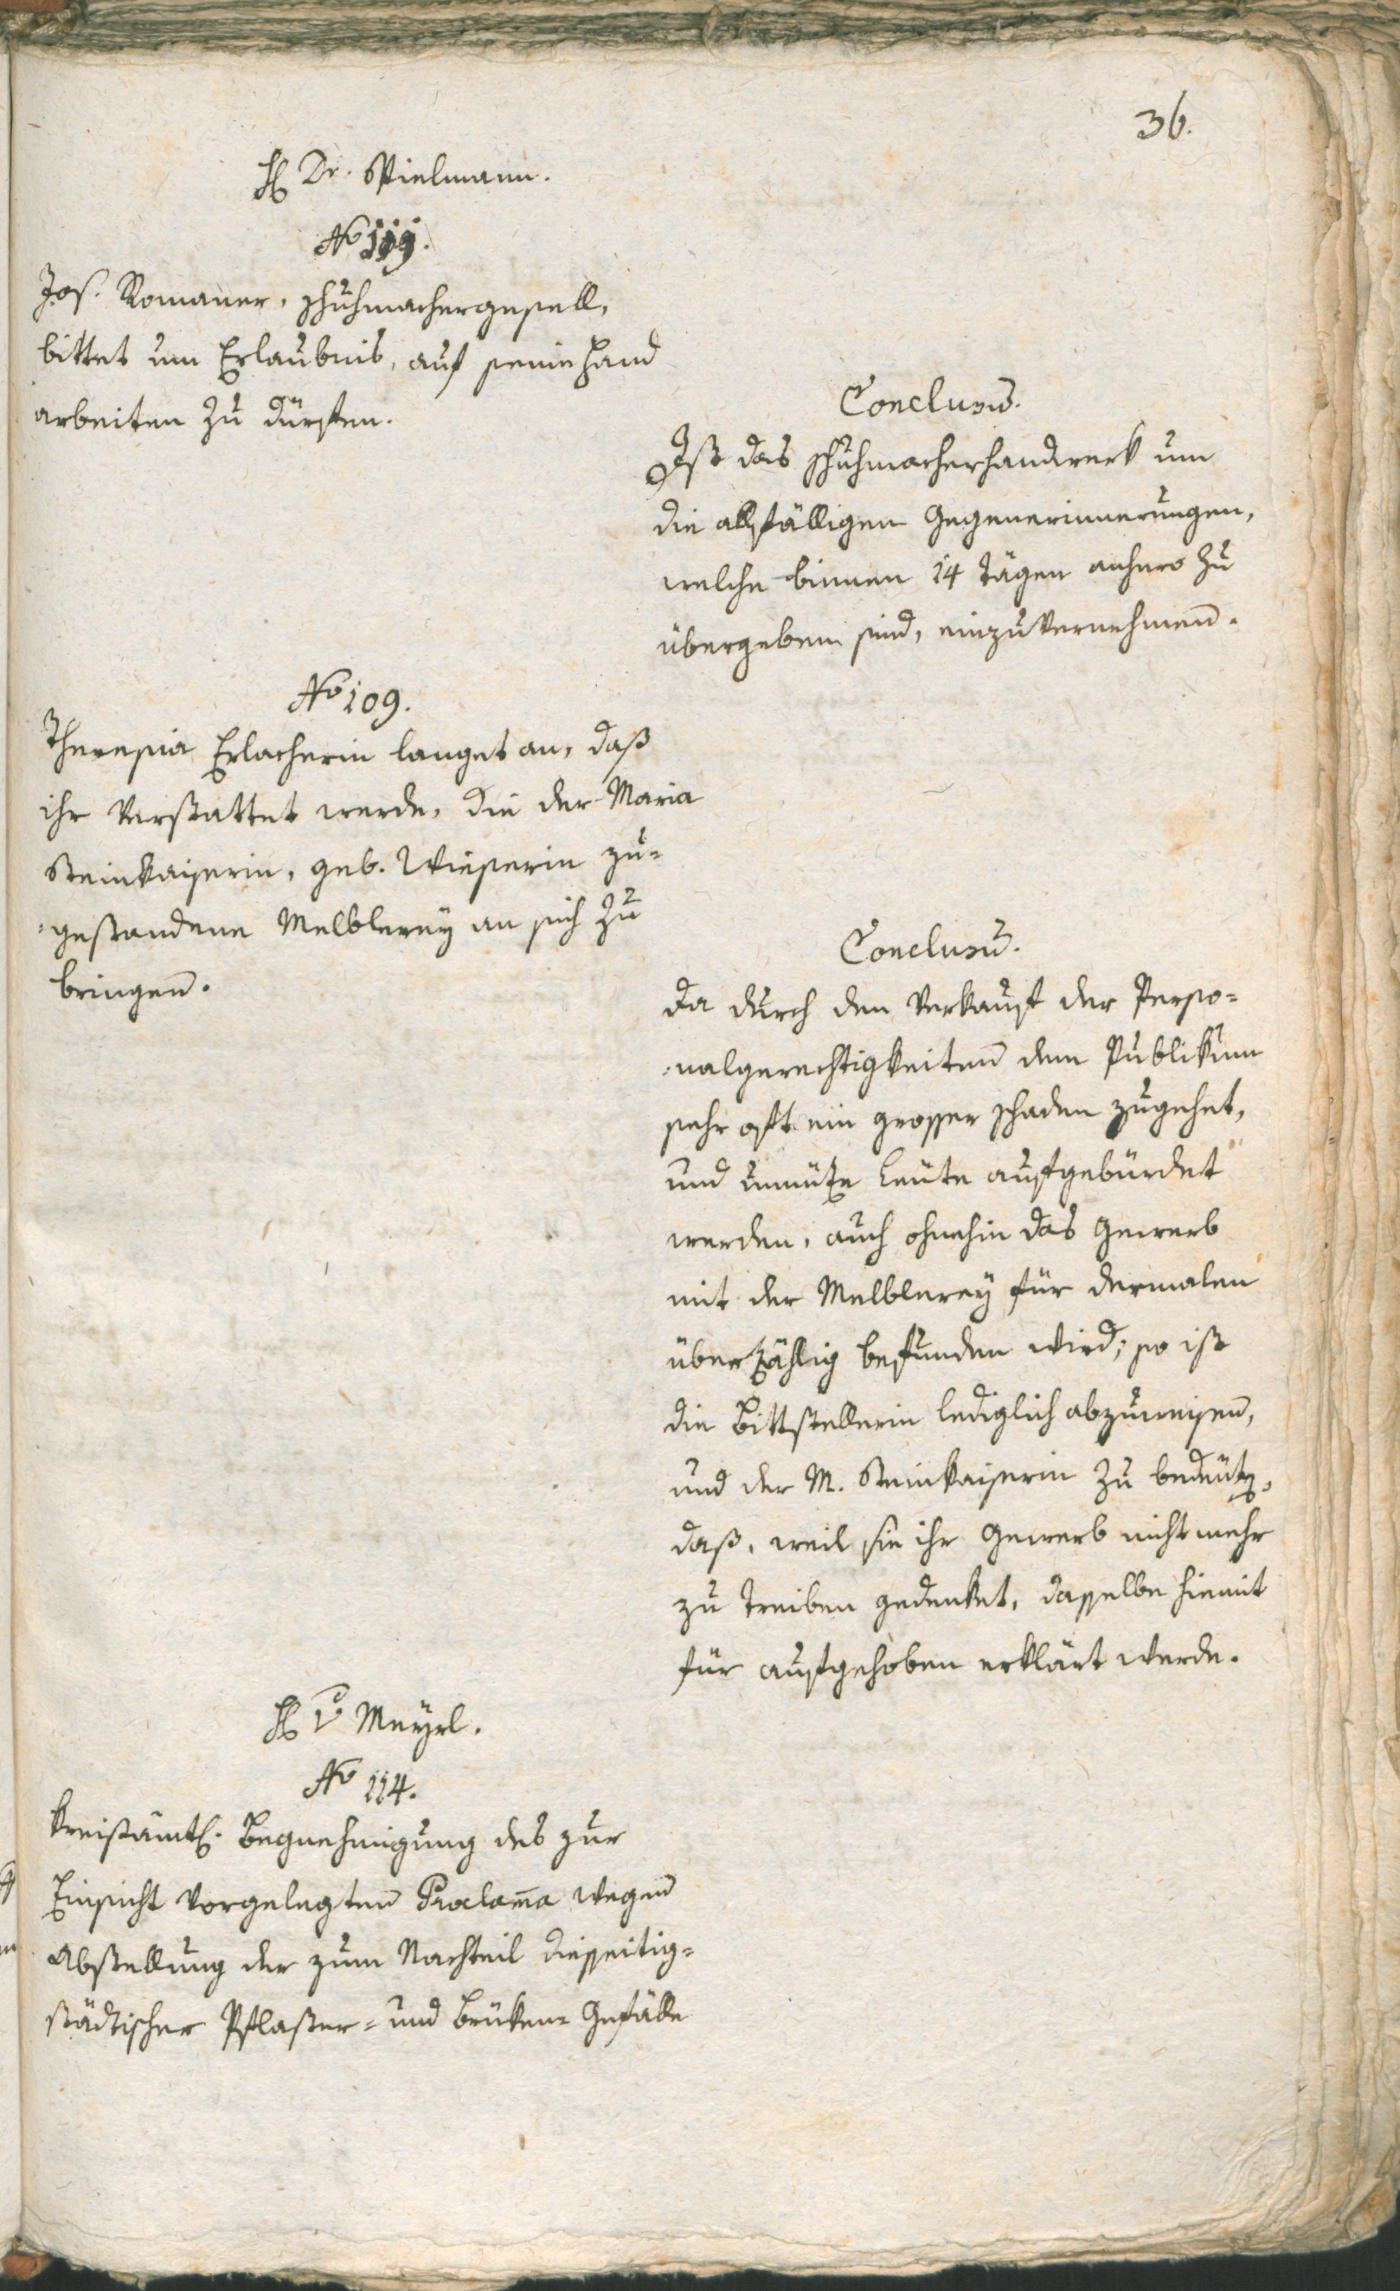 36.
H Dr. Vielmann.
No 119.
Jos. Romaner, Schuhmachergesell,
bittet um Erlaubnis, auf seine Hand
arbeiten zu dürfen.
Conclusum.
Ist das Schuhmacherhandwerk um
die allfälligen Gegenerinnerungen,
welche binnen 14 Tägen anhero zu
übergeben sind, einzuvernehmen.
No 109.
Theresia Erlacherin langet an, daß
ihr verstattet werde, die der Maria
Steinkaiserin, geb. Wieserin zu=
=gestandene Melblerey an sich zu
bringen.
Conclusum.
Da durch den Verkauf der Perso=
=nalgerechtigkeiten dem Publikum
sehr oft ein grosser Schaden zugehet,
und unnütze Leute aufgebürdet
werden, auch ohnehin das Gewerb
mit der Melblerey für dermalen
überzählig befunden wird; so ist
die Bittstellerin lediglich abzuweisen,
und der M. Steinkaiserin zu bedeuten,
daß, weil sie ihr Gewerb nicht mehr
zu treiben gedenket, dasselbe hiemit
für aufgehoben erklärt werde.
H v Mayrl.
No 114.
Kreisämtl. Begnehmigung des zur
Einsicht vorgelegten Proclama wegen
Abstellung der zum Nachteil diesseitig=
städtischer Pflaster= und Brüken= Gefälle